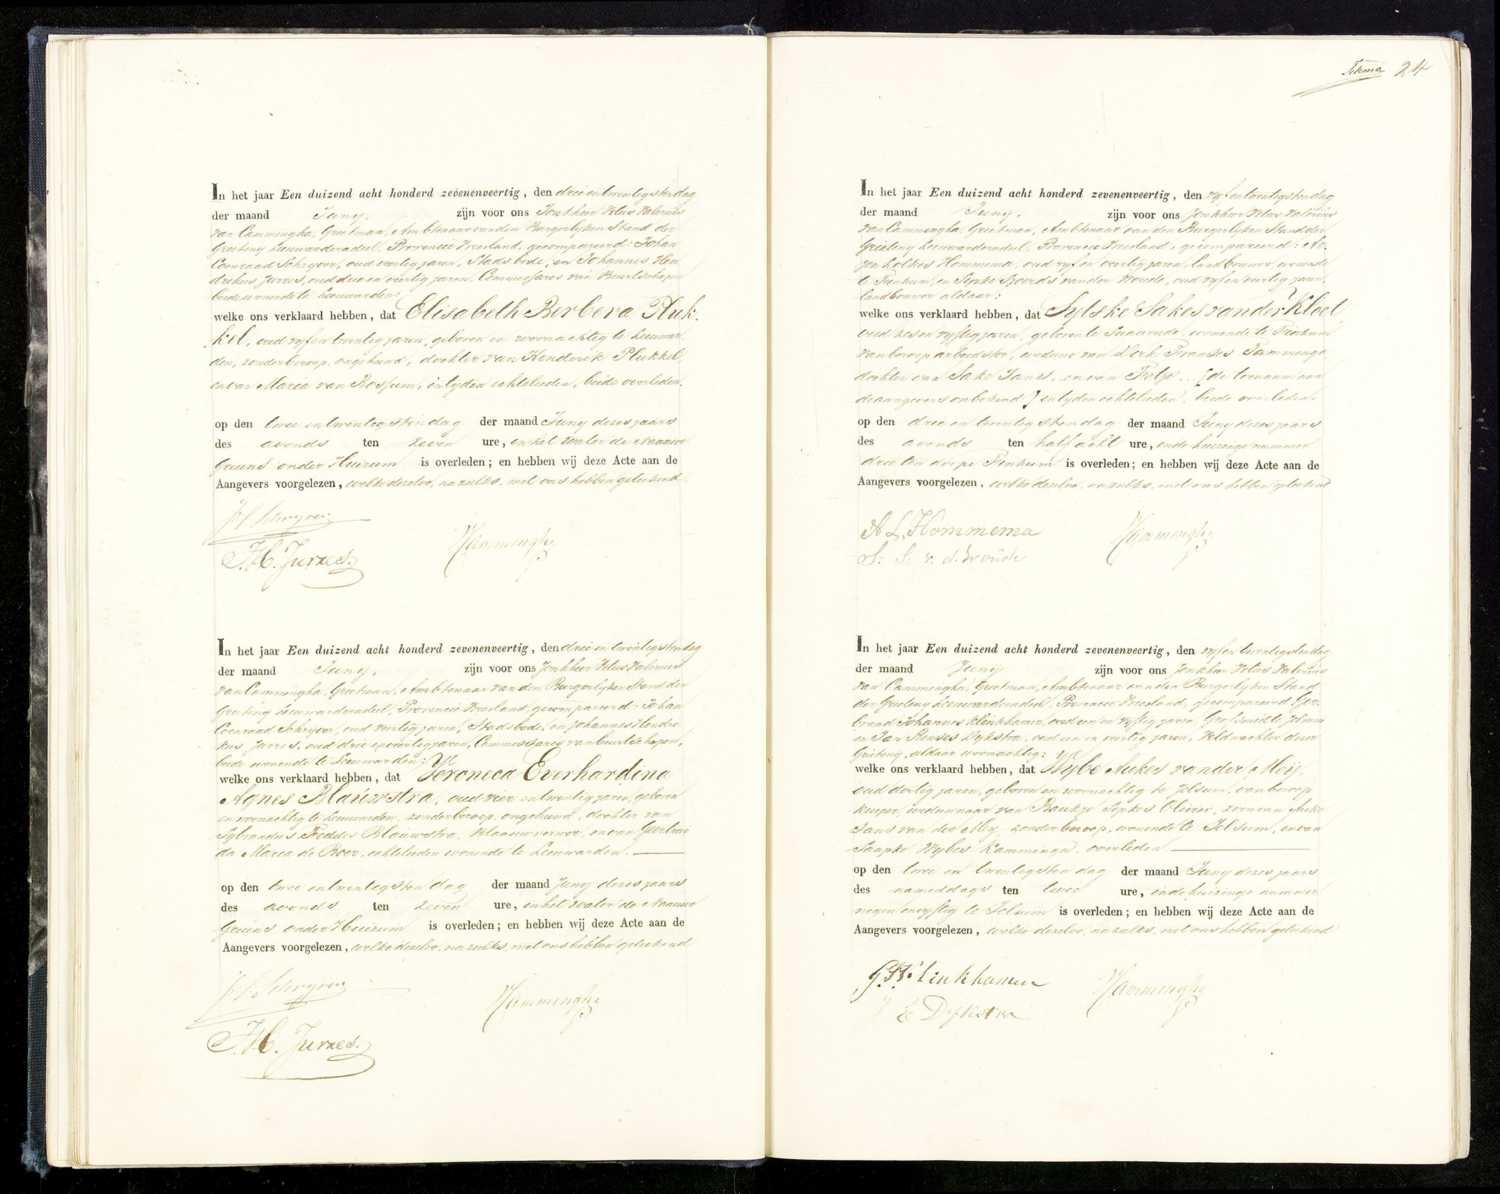 In het jaar Een duizend acht honderd zevenenveertig, den drie en twentigsten dag
der maand Juny, zijn voor ons Jonkheer Vitus Valerius
van Cammingha, Grietman, Ambtenaar van den Burgerlyken Stand der
Grieteny Leeuwarderadeel, Provincie Vriesland, gecompareerd: Johan
Coenraad Schryver, oud veertig jaren, Stadsbode, en Johannes Hen
drikus Jurres, oud drie en veertig jaren, Commissaris van Beurtschepen
beide wonende te Leeuwarden;
welke ons verklaard hebben, dat Elisabeth Berbera Pluk-
kel, oud vyf en twentig jaren, geboren en woonachtig te Leeuwar
den, zonder beroep, ongehuwd, dochter van Henderik Plukkel
en van Maria van Rossum, in tyden echtelieden, beide overleden.
op den twee en twentigsten dag der maand Juny dezes jaars
des avonds ten zeven ure, in het water de Nauwe
Greuns onder Huizum is overleden; en hebben wij deze Acte aan de
Aangevers voorgelezen, welke dezelve, nazulks, met ons hebben geteekend.
J C Schryver
J. H. Jurres.
VVCammingha
In het jaar Een duizend acht honderd zevenenveertig, den drie en twentigsten dag
der maand Juny, zijn voor ons Jonkheer Vitus Valerius
van Cammingha, Grietman, Ambtenaar van den Burgerlyken Stand der
Grieteny Leeuwarderadeel, Provincie Vriesland, gecompareerd: Johan
Coenraad Schryver, oud veertig jaren, Stadsbode, en Johannes Hendri
kus Jurres, oud drie en veertig jaren, Commissaris van beurtschepen,
beide wonende te Leeuwarden;
welke ons verklaard hebben, dat Veronica Everhardina
Agnes Blauwstra, oud vier en twentig jaren, geboren
en woonachtig te Leeuwarden, zonder beroep, ongehuwd, dochter van
Sybrandus Feddes Blauwstra, Blaauwverwer, en van Geertrui
da Maria de Boer, echtelieden wonende te Leeuwarden.
op den twee en twentigsten dag der maand Juny dezes jaars
des avonds ten zeven ure, in het water de Nauwe
Greuns onder Huizum is overleden; en hebben wij deze Acte aan de
Aangevers voorgelezen, welke dezelve, nazulks, met ons hebben geteekend
J C Schryver
J. H. Jurres.
VVCammingha
24
In het jaar Een duizend acht honderd zevenenveertig, den vyf en twentigsten dag
der maand Juny, zijn voor ons Jonkheer Vitus Valerius
van Cammingha, Grietman, Ambtenaar van den Burgerlyken Stand der
Grieteny Leeuwarderadeel, Provincie Vriesland, gecompareerd: Ar
jen Lolkes Hommema, oud vyf en veertig jaren, landbouwer, wonende
te Stienkum, en Sjoerds van der Woude, oud vyf en veertig jaren,
landbouwer aldaar;
welke ons verklaard hebben, dat Sytske Sakes van der Kloet
oud zes en vyftig jaren, geboren te wonende te
van beroep arbeidster, weduwe van Dirk Fransen Tamminga
dochter van Sake Jans, en van [de toenaam aan
de aangevers onbekend] in tyden echtelieden, beide overleden.
op den drie en twentigsten dag der maand Juny dezes jaars
des avonds ten half acht ure, in de huizinge nummer
drie ten dorpe is overleden; en hebben wij deze Acte aan de
Aangevers voorgelezen, welke dezelve, nazulks, met ons hebben geteekend
A L Hommema
S. S. v. d. Woude
VVCammingha
In het jaar Een duizend acht honderd zevenenveertig, den vyf en twentigsten dag
der maand Juny zijn voor ons Jonkheer Vitus Valerius
van Cammingha, Grietman, Ambtenaar van den Burgerlyken Stand
der Grieteny Leeuwarderadeel, Provincie Vriesland, gecompareerd Ger
brand Johannes Klinkhamer, oud een en vyftig jaren, Grofsmid te Jelsum
en Jan Eises Dykstra, oud een en veertig jaren, Veldwachter dezer
Grieteny, aldaar woonachtig;
welke ons verklaard hebben, dat Wybe Aukes van der Meij,
oud dertig jaren, geboren en woonachtig te Jelsum, van beroep
weduwnaar van Baukje Sytzes Olivier, zoon van Auke
Jans van der Mey, zonder beroep, wonende te Jelsum, en van
Saapke Wybes Kamminga, overleden
op den twee en twentigsten dag der maand Juny dezes jaars
des nameddags ten twee ure, in de huizinge nummer
negen en vyftig te Jelsum is overleden; en hebben wij deze Acte aan de
Aangevers voorgelezen, welke dezelve, nazulks, met ons hebben geteekend
G. J. Klinkhamer
J E Dijkstra
VVCammingha